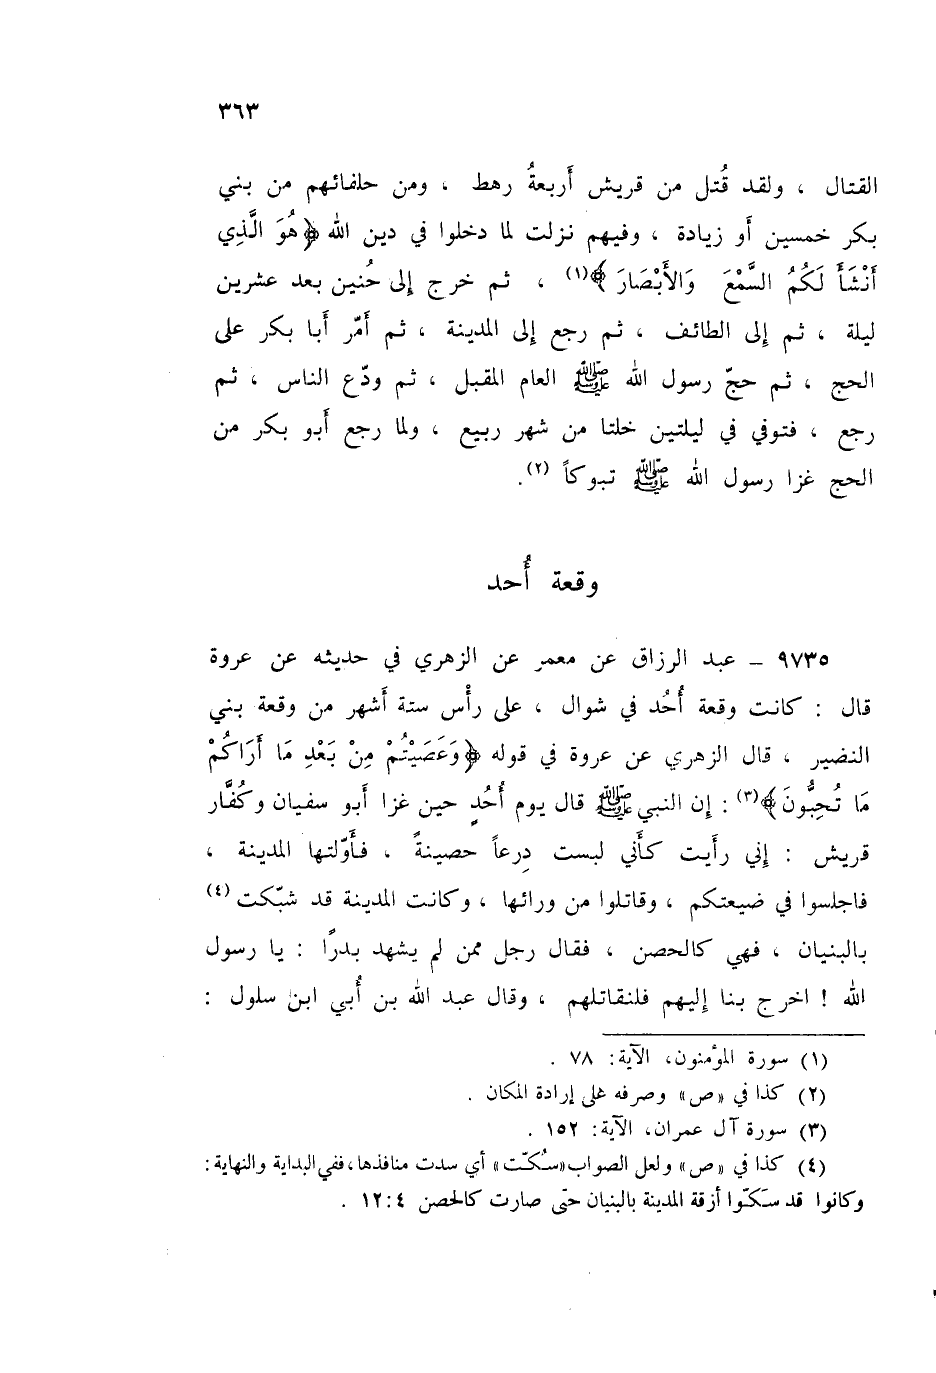 ٣٦٣
القتال ، ولقد قُتل من قريش أَربعةُ رهط ، ومن حلفائهم من بني
بكر خمسين أَو زيادة ، وفيهم نزلت لما دخلوا في دين الله ﴿هُوَ الَّذِي
أَنْشَأَ لَكُمُ السَّمْعَ وَالأَبْصَارَ﴾(١) ، ثم خرج إِلى حُنين بعد عشرين
ليلة ، ثم إِلى الطائف ، ثم رجع إِلى المدينة ، ثم أَمّر أَبا بكر على
الحج ، ثم حجّ رسول الله ﷺ العام المقبل ، ثم ودّع الناس ، ثم
رجع ، فتوفي في ليلتين خلتا من شهر ربيع ، ولما رجع أَبو بكر من
الحج غزا رسول الله ﷺ تبوكاً (٢).
وقعة أُحد
٩٧٣٥ – عبد الرزاق عن معمر عن الزهري في حديثه عن عروة
قال : كانت وقعة أُحُد في شوال ، على رأْس ستة أَشهر من وقعة بني
النضير ، قال الزهري عن عروة في قوله ﴿وَعَصَيْتُمْ مِنْ بَعْدِ مَا أَرَاكُمْ
مَا تُحِبُّونَ﴾(٣) : إِن النبي ﷺ قال يوم أُحُدٍ حين غزا أَبو سفيان وكفَّار
قريش : إِني رأَيت كأَني لبست دِرعاً حصينةً ، فأَوّلتها المدينة ،
فاجلسوا في ضيعتكم ، وقاتلوا من ورائها ، وكانت المدينة قد شبّكت (٤)
بالبنيان ، فهي كالحصن ، فقال رجل ممن لم يشهد بدرًا : يا رسول
الله ! اخرج بنا إِليهم فلنقاتلهم ، وقال عبد الله بن أُبي ابن سلول :
(١) سورة المؤمنون، الآية: ٧٨ .
(٢) كذا في «ص» وصرفه على إرادة المكان .
(٣) سورة آل عمران، الآية: ١٥٢ .
(٤) كذا في «ص» ولعل الصواب«سُكّت» أي سدت منافذها، ففي البداية والنهاية :
وكانوا قد سَكّوا أزقة المدينة بالبنيان حتى صارت كالحصن ٤ :١٢ .